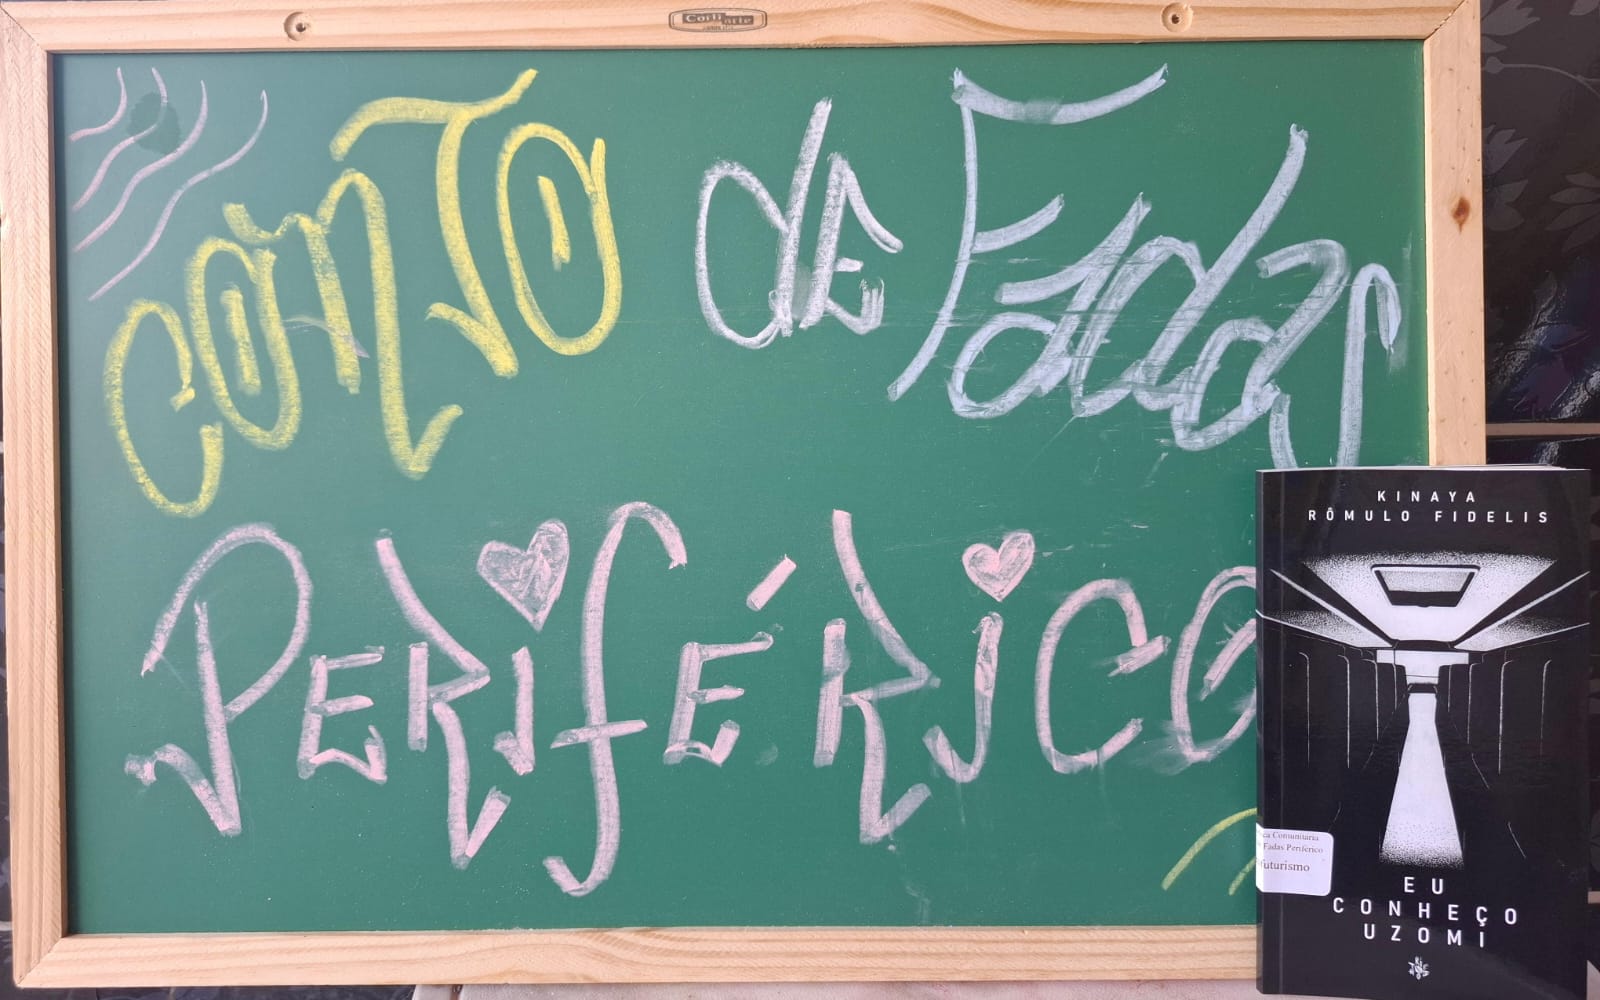 Corti arte
CONTO de Fadas
PERIFÉRICO
KINAYA
RÔMULO FIDELIS
ca Comunitária
Fadas Periférico
futurismo
EU
CONHEÇO
UZOMI